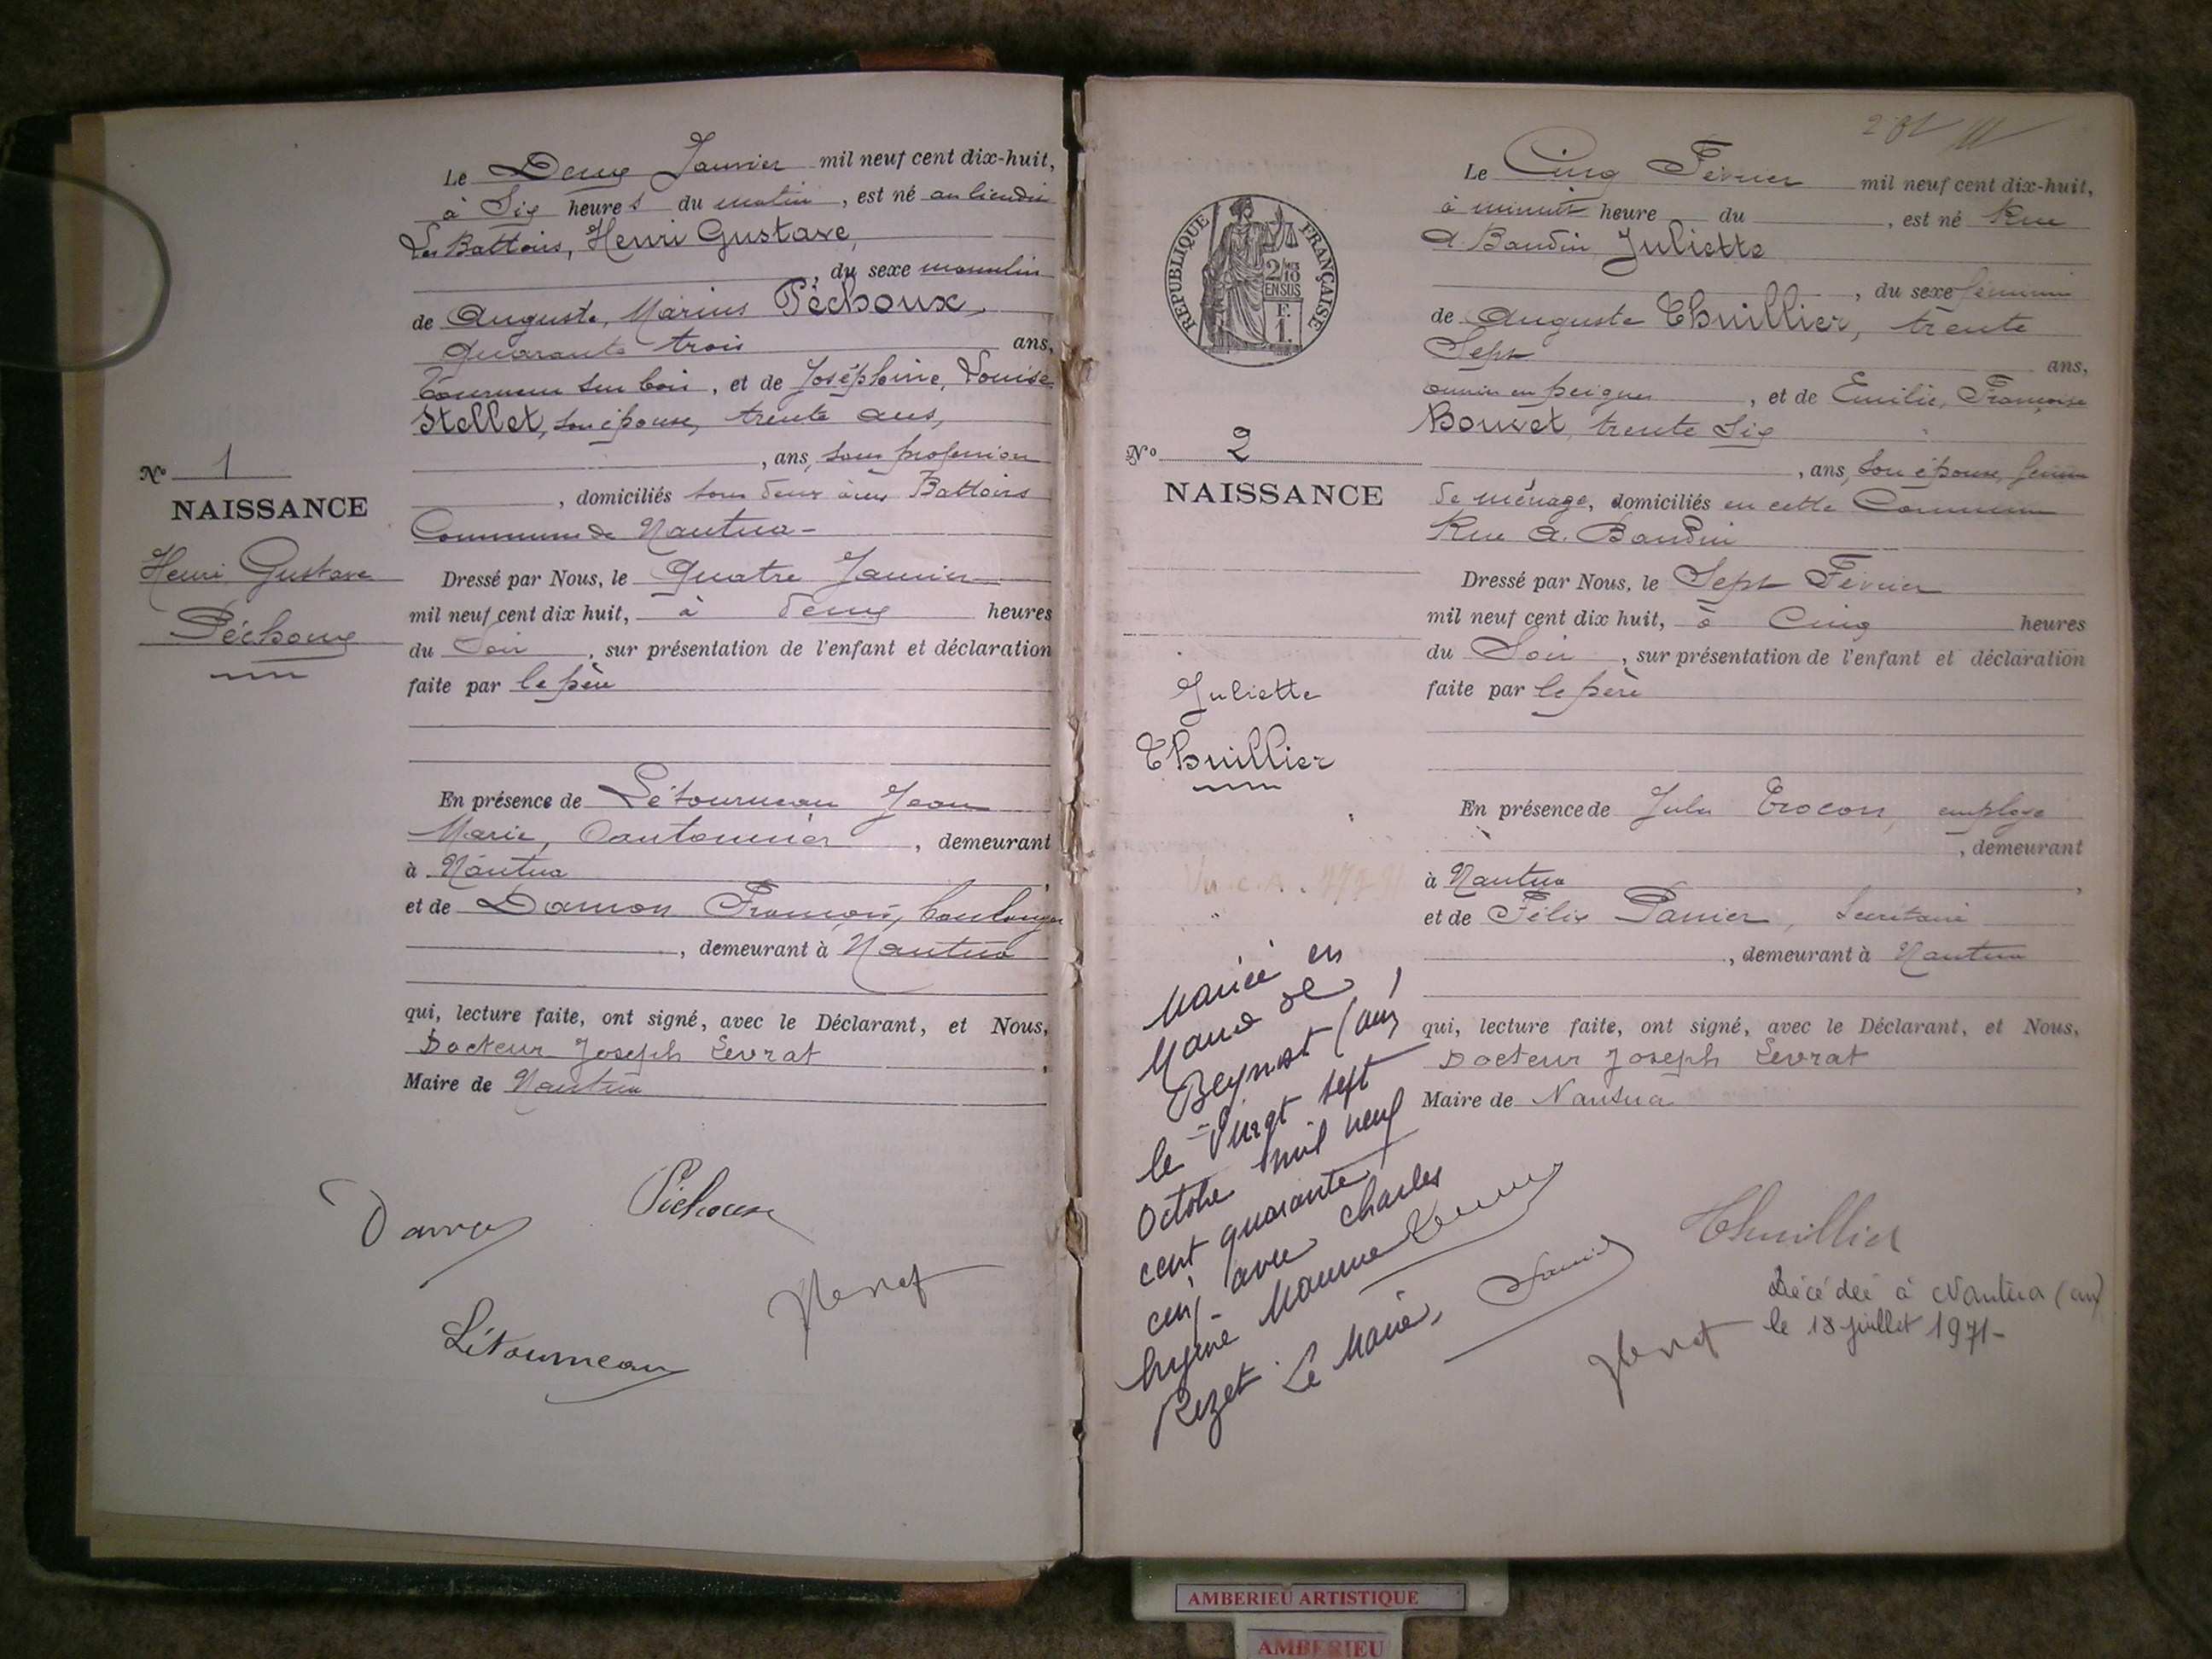 Le Deux Janvier mil neuf cent dix-huit,
à Six heures du matin, est né au lieudit
Les Battoirs, Henri Gustave,
, du sexe masculin
de Auguste, Marius Péchoux,
quarante trois ans,
tourneur sur bois, et de Joséphine, Louise
Stellet, son épouse, trente ans,
, ans, sans profession
, domiciliés tous deux aux Battoirs
Commune de Nantua-
Nº 1
NAISSANCE
Henri Gustave
Péchoux
Dressé par Nous, le Quatre Janvier
mil neuf cent dix huit, à deux heures
du Soir, sur présentation de l'enfant et déclaration
faite par le père
En présence de Létourneau Jean
Marie, Cantonnier, demeurant
à Nantua,
et de Damon François, boulanger
, demeurant à Nantua
qui, lecture faite, ont signé, avec le Déclarant, et Nous,
Docteur Joseph Levrat,
Maire de Nantua
Péchoux
Létourneau
Le Cinq Février mil neuf cent dix-huit,
à minuit heure du , est né Rue
A. Baudin Juliette
, du sexe féminin
de Auguste Thuillier, trente
Sept ans,
ouvrier en peignes, et de Emilie, Françoise
Bouvet, trente Six
, ans, son épouse, femme
de ménage, domiciliés en cette Commune
Rue A. Baudin
RÉPUBLIQUE FRANÇAISE
2/10 MES
EN SUS
F.
1.
Nº 2
NAISSANCE
Juliette
Thuillier
Dressé par Nous, le Sept Février
mil neuf cent dix huit, à Cinq heures
du Soir, sur présentation de l'enfant et déclaration
faite par le père
En présence de Jules employé
, demeurant
à Nantua,
et de Félix Panier, Secrétaire
, demeurant à Nantua
qui, lecture faite, ont signé, avec le Déclarant, et Nous,
Docteur Joseph Levrat
Maire de Nantua
Mariée en
Mairie de
Beynost (Ain)
le Vingt sept
Octobre mil neuf
cent quarante
cinq avec Charles
Rezet. Le Maire,
Thuillier
Décédée à Nantua (Ain)
le 18 juillet 1971-
AMBERIEU ARTISTIQUE
AMBERIEU